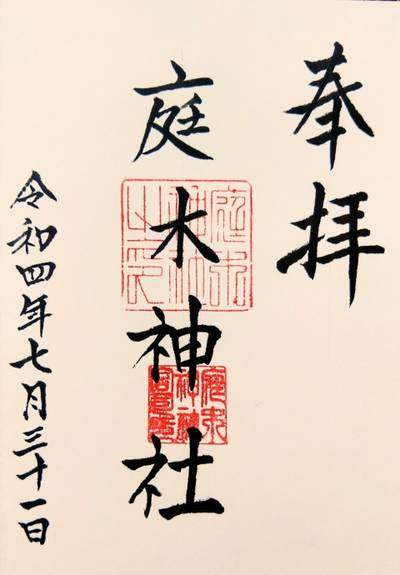 奉拝
庭木神社
令和四年七月三十一日